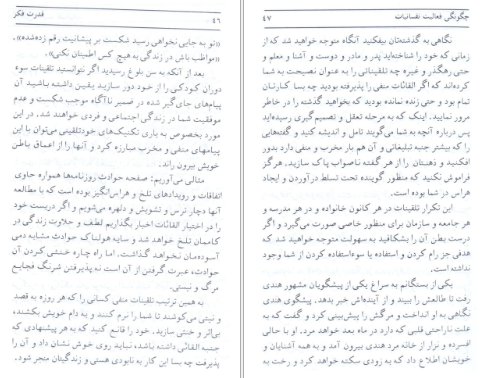 چگونگی فعالیت نفسانیات
۴۷
نگاهی به گذشته‌تان بیفکنید آنگاه متوجه خواهید شد که از
زمانی که خود را شناخته‌اید پدر و مادر و دوست و آشنا و معلم و
حتی رهگذر و غیره چه تلقیناتی را به عنوان نصیحت به شما
کرده‌اند که اگر القائات منفی را پذیرفته بودید چه بسا کارتان
تمام بود و حتی زنده نمانده بودید که بخواهید گذشته را در خاطر
مرور نمایید. اینک که به مرحله تعقل و تصمیم گیری رسیده‌اید
پس درباره آنچه به شما می‌گویند تامل و اندیشه کنید و گفته‌هایی
را که بیشتر جنبه تبلیغاتی و آن هم بار مخرب و منفی دارد بدور
افکنید و ذهنتان را از هر گفته ناصواب پاک سازید. هرگز
فراموش نکنید که منظور گوینده تحت تسلط درآوردن و ایجاد
هراس در شما بوده است.
این تکرار تلقینات در هر کانون خانواده و در هر مدرسه و
هر جامعه و سازمان برای منظور خاصی صورت می‌گیرد و اگر
درست بطن آن را بشکافید به سهولت متوجه خواهید شد که
هدفی جز رام کردن و استفاده یا سوءاستفاده کردن از شما وجود
نداشته است.
یکی از بستگانم به سراغ یکی از پیشگویان مشهور هندی
رفت تا طالعش را ببیند و از آینده‌اش خبر بدهد. پیشگوی هندی
نگاهی به او انداخت و مرگش را پیش‌بینی کرد و گفت که به
علت ناراحتی قلبی که دارد در ماه بعد خواهد مرد. او با حالی
افسرده و نزار از خانه مرد هندی بیرون آمد و به همه آشنایان و
خویشان اطلاع داد که به زودی سکته خواهد کرد و رخت به
۴۶
قدرت فکر
«تو به جایی نخواهی رسید شکست بر پیشانیت رقم زده‌شده».
«مواظب باش در زندگی به هیچ کس اطمینان نکنی».
بعد از آنکه به سن بلوغ رسیدید اگر نتوانستید تلقینات سوء
دوران کودکی را از خود دور سازید یقین داشته باشید آن
پیام‌های جای‌گیر شده در ضمیر ناآگاه موجب شکست و عدم
موفقیت شما در زندگی اجتماعی و فردی خواهند شد. در این
مورد بخصوص به یاری تکنیک‌های خودتلقینی می‌توان با این
پیام‌های منفی و مخرب مبارزه کرد و آنها را از اعماق باطن
خویش بیرون راند.
مثالی می‌آوریم: صفحه حوادث روزنامه‌ها همواره حاوی
اتفاقات و رویدادهای تلخ و هراس‌انگیز بوده است که با مطالعه
آنها دچار ترس و تشویش و دلهره می‌شویم و اگر دربست خود
را در اختیار القائات اخبار بگذاریم لطف و حلاوت زندگی در
کاممان تلخ خواهد شد و سایه هولناک حوادث مشابه دمی
آسوده‌مان نخواهد گذاشت. اما راه چاره خنثی کردن آن
حوادث، عبرت گرفتن از آن است نه پذیرفتن شرنگ فجایع
مرگ و نیستی.
به همین ترتیب تلقینات منفی کسانی را که هر روزه به قصد
و نیتی می‌کوشند تا شما را نرم کنند و به دام خویش بکشند،
بی‌اثر و خنثی سازید. خود را قانع کنید که به هر پیشنهادی که
جنبه القائی داشته باشد، نباید روی خوش نشان داد و آن را
پذیرفت چه بسا این کار به نابودی هستی و زندگیتان منجر شود.